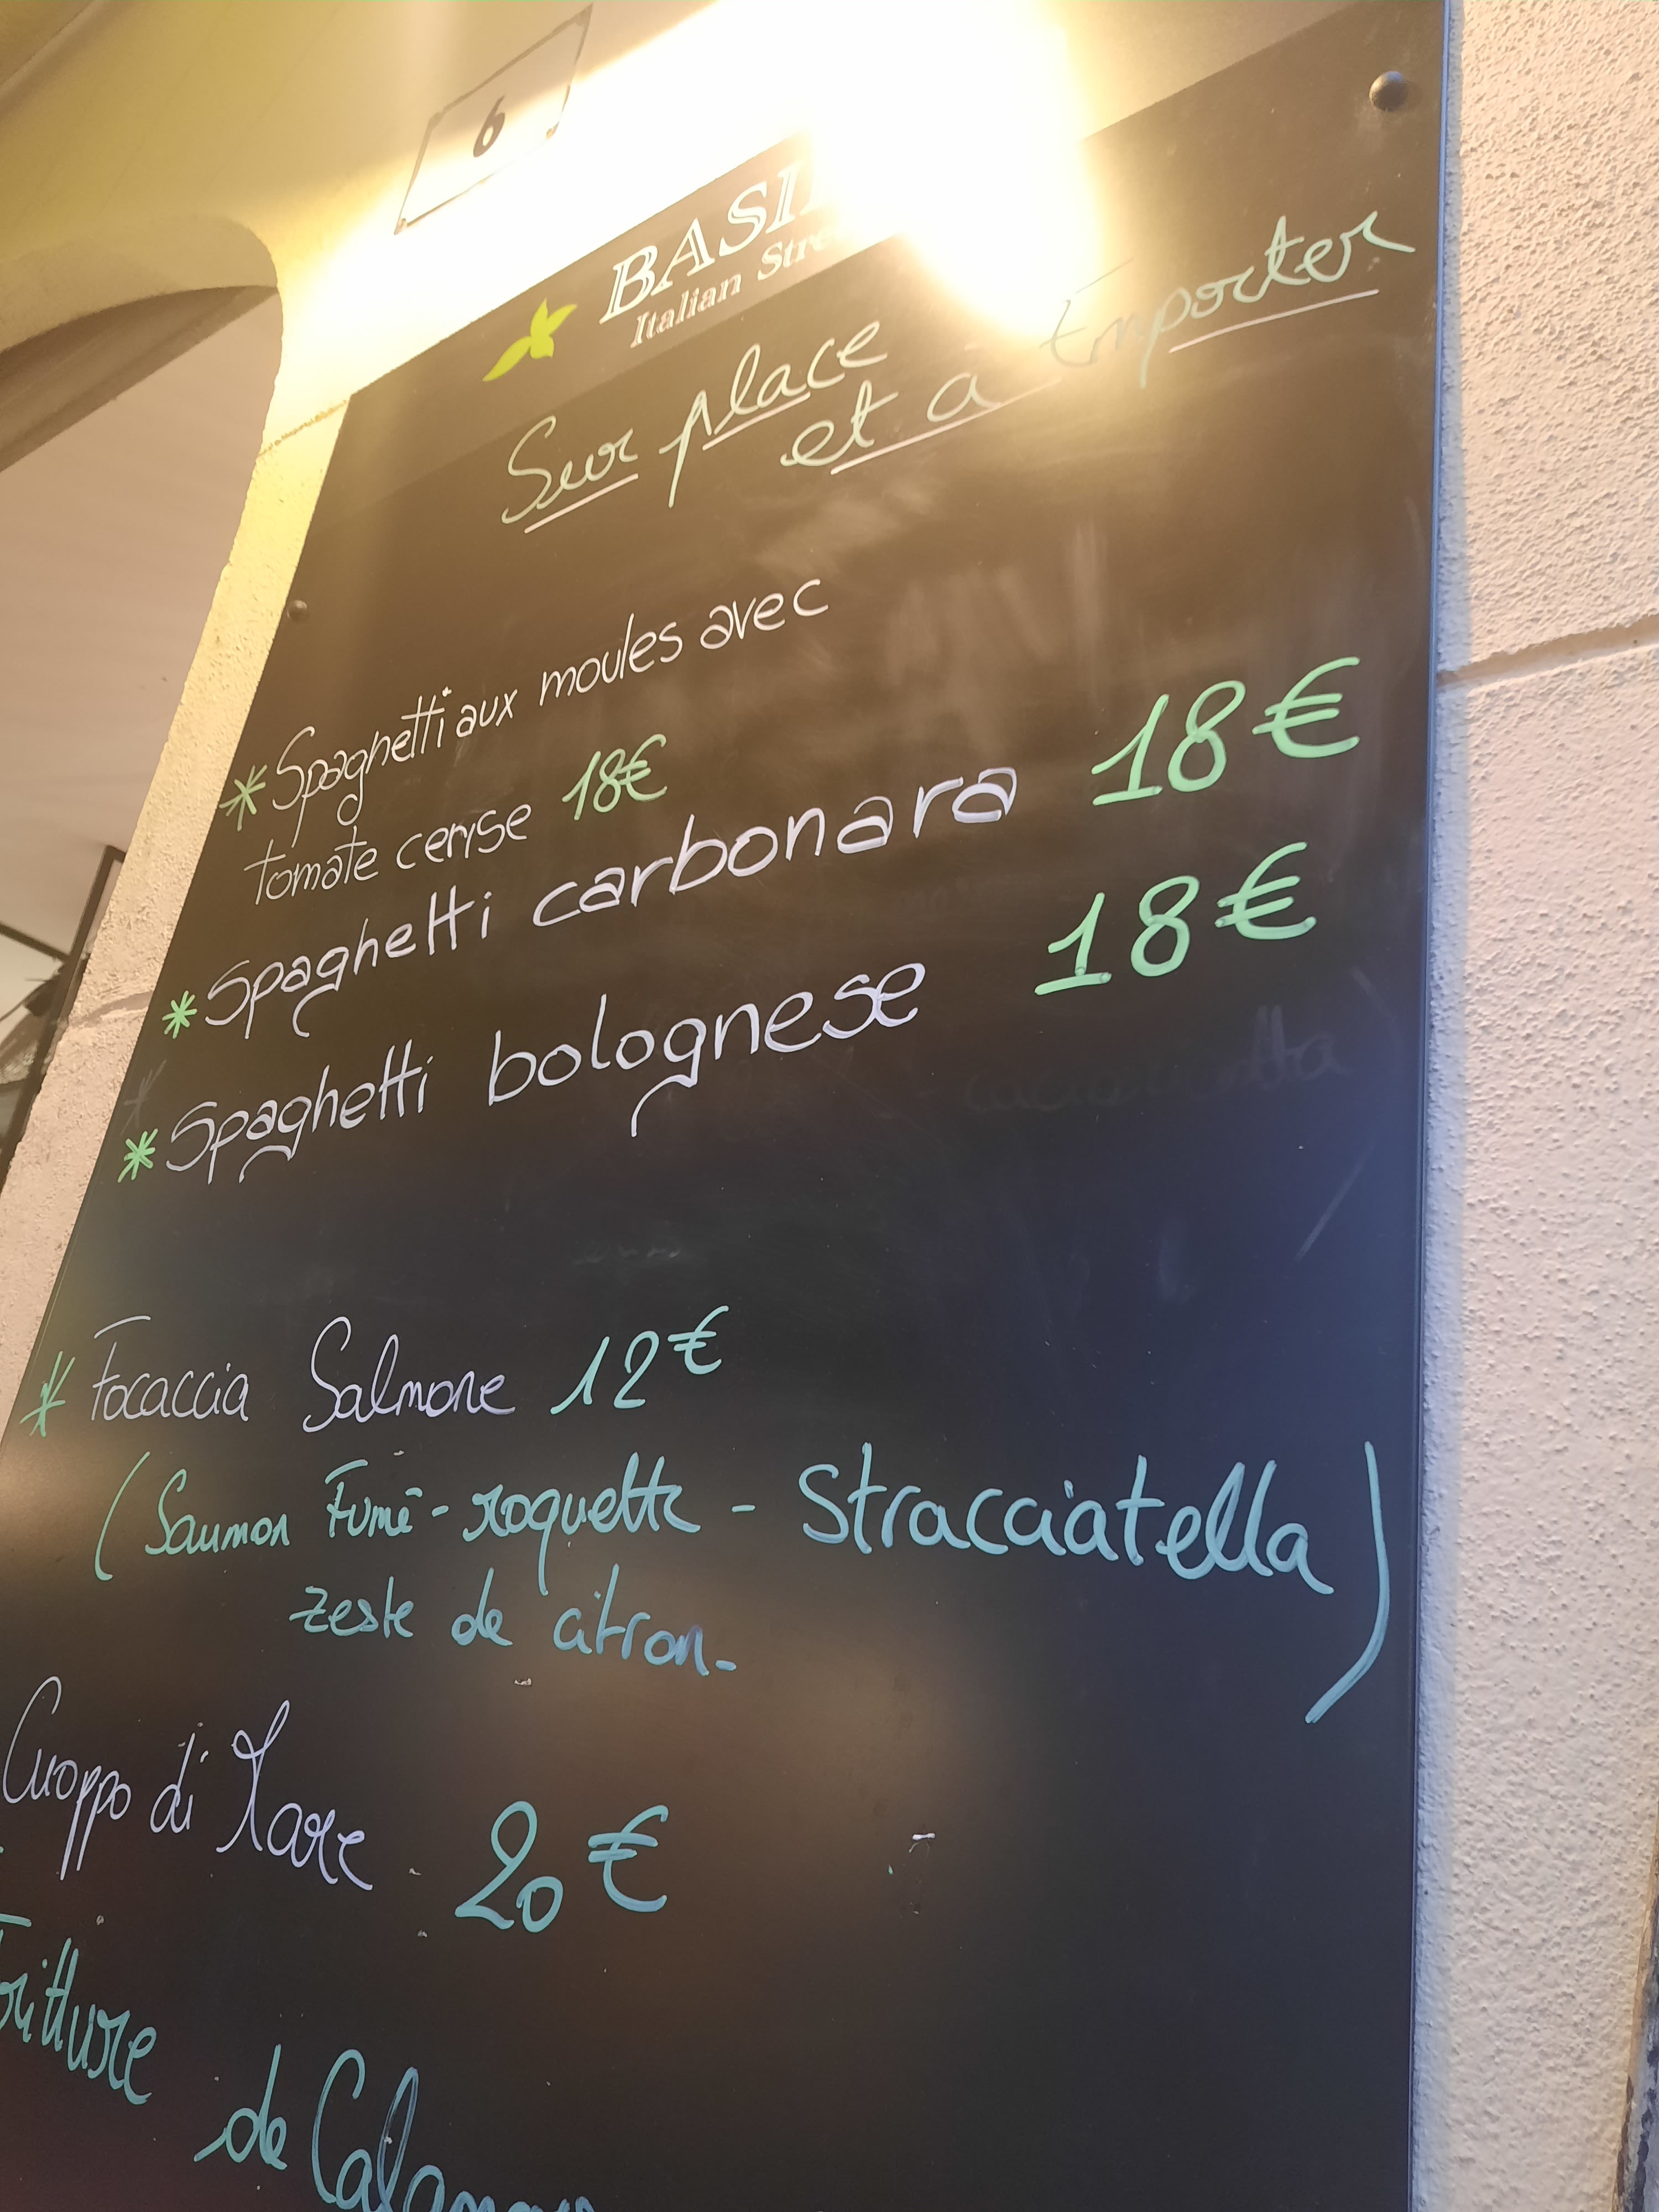 6
BASI
Italian Stre
Sur place
et a Emporter
* Spaghetti aux moules avec
tomate cerise 18€
* Spaghetti carbonara 18€
* Spaghetti bolognese 18€
* Focaccia Salmone 12€
(Saumon Fumé - roquette - Stracciatella)
zeste de citron.
Cuoppo di Mare 20€
Fritture de Calamars